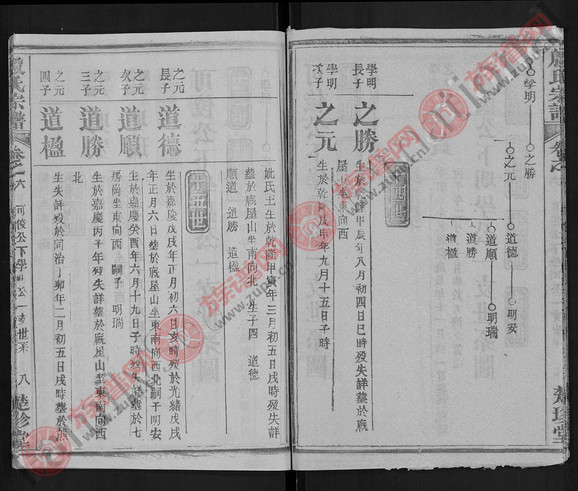 盧氏宗譜
學明
之勝
之元
道德
明安
道順
明瑞
道勝
道楹
學明長子
之勝
生於乾隆甲辰年八月初四日巳時歿失詳塟於廠屋山坐東向西
學明次子
之元
生於乾隆戊申年九月十五日子時
妣氏王生於乾隆甲寅年三月初五日戌時歿失詳
塟於廠屋山坐南向北 生子四 道德
道順 道勝 道楹
之元長子
道德
生於嘉慶戊戌年正月初六日亥時歿於光緒戊戌
年正月六日塟於廠屋山坐東南向西北嗣子明安
之元次子
道順
生於嘉慶癸酉年六月十九日子時歿失詳塟於七
坐東向西 嗣子 明瑞
之元三子
道勝
生於嘉慶丙子年歿失詳塟於廠屋山坐東南向西
北
之元四子
道楹
生失詳歿於同治丁卯年二月初五日戌時塟於
盧氏宗譜
卷之六
可俊公下學明公一支世系
八
楚珍堂
楚珍堂
族譜网
www.zupu.cn